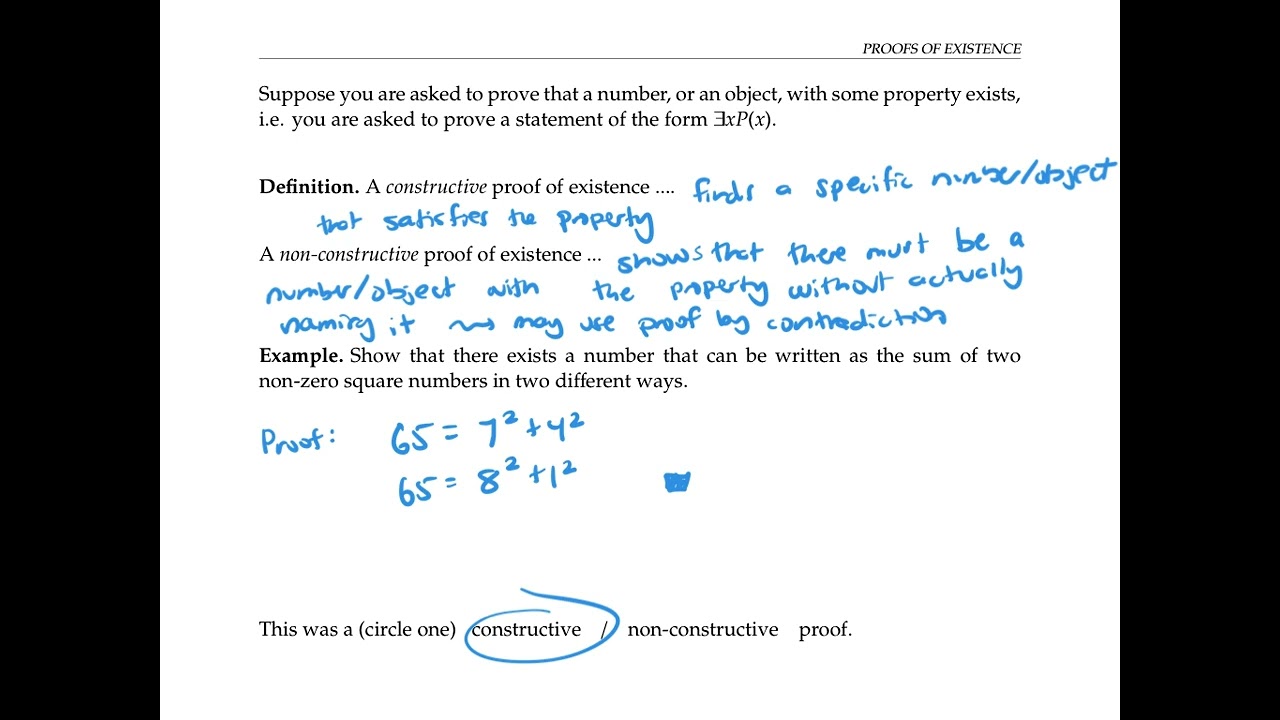 PROOFS OF EXISTENCE
Suppose you are asked to prove that a number, or an object, with some property exists,
i.e. you are asked to prove a statement of the form ∃xP(x).
Definition. A constructive proof of existence .... finds a specific number/object
that satisfies the property
A non-constructive proof of existence ... shows that there must be a
number/object with the property without actually
naming it ⇝ may use proof by contradiction
Example. Show that there exists a number that can be written as the sum of two
non-zero square numbers in two different ways.
Proof: 65 = 7² + 4²
65 = 8² + 1² ■
This was a (circle one) constructive / non-constructive proof.